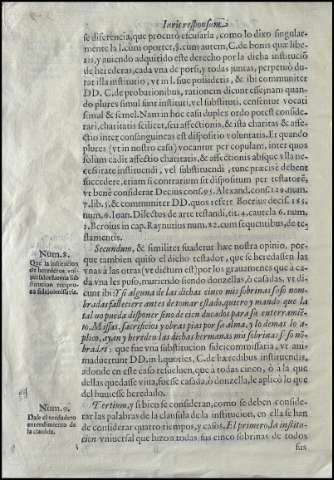 Iuris responsum.
se diferencia, que procurò escusarla, como lo dixo singular-
mente la l. cum oportet, §. cum autem, C. de bonis quæ libe-
ris, y auiendo adquirido este derecho por la dicha instituciõ
de herederas, cada vna de por sy, y todas juntas, perpetuò du-
rar illa institutio, vt in l. sue poβidetis, & ibi communiter
DD. C. de probationibus, rationem dicunt esse; nam quan-
do plures simul sunt instituti, vel substituti, censentur vocati
simul & semel. Nam in hoc casu duplex ordo potest conside-
rari, charitatis scilicet, seu affectionis, & ista charitas & affe-
ctio inter consanguineas est dispositio voluntatis. Et quando
plures (vt in nostro casu) vocantur per copulam, inter quos
solum cadit affectio charitatis, & affectionis absque vlla ne-
cessitate instituendi, vel substituendi, tunc precisè debent
succedere, etiam si contrarium sit dispositum per testatorẽ,
vt benè considerat Decius cons. 95. Alexand. cons. 129. num.
7. lib. 5. & communiter DD. quos refert Boerius decis. 185.
num. 6. Ioan. Dilectos de arte testandi, tit. 4. cautela 6. num.
1. Beroius in cap. Raynutius num. 22. cum sequentibus, de te-
stamentis.
Num. 8.
Que la institucion
de herederos, en-
tre hermanas sub-
stitucion recipro-
ca fideicomissaria.
Secundum, & similiter suadetur hæc nostra opinio, por-
que tambien quiso el dicho testador, que se heredassen las
vnas à las otras (vt dictum est) por los grauamenes que à ca-
da vna les puso, muriendo siendo donzellas, ò casadas, vt di-
cunt ibi: Y si alguna de las dichas cinco mis sobrinas assi nom-
bradas falleciere antes de tomar estado, quiero y mando que la
tal no pueda disponer sino de cien ducados para su enterramiẽ-
to, Missas, sacrificios y obras pias por su alma, y lo demas lo a-
plico, ayan y hereden las dichas hermanas mis sobrinas si no-
bradas: que fue vna substitucion fideicommissaria, vt an-
nuaduerunt DD. in l. quoties, C. de hæredibus instituendis,
adonde en este caso resuelue, que à todas cinco, ò à la que
dellas quedasse viua, fuesse casada, ò donzella, se aplicò lo que
del huuiesse heredado.
Num. 9.
Dase el verdadero
entendimiento de
la clausula.
Tertium, y si bien se consideran, como se deben conside-
rar las palabras de la clausula de la institucion, en ella se han
de considerar quatro tiempos, y casos. El primero, la institu-
cion vniuersal que hizo à todas sus cinco sobrinas de todos
sus